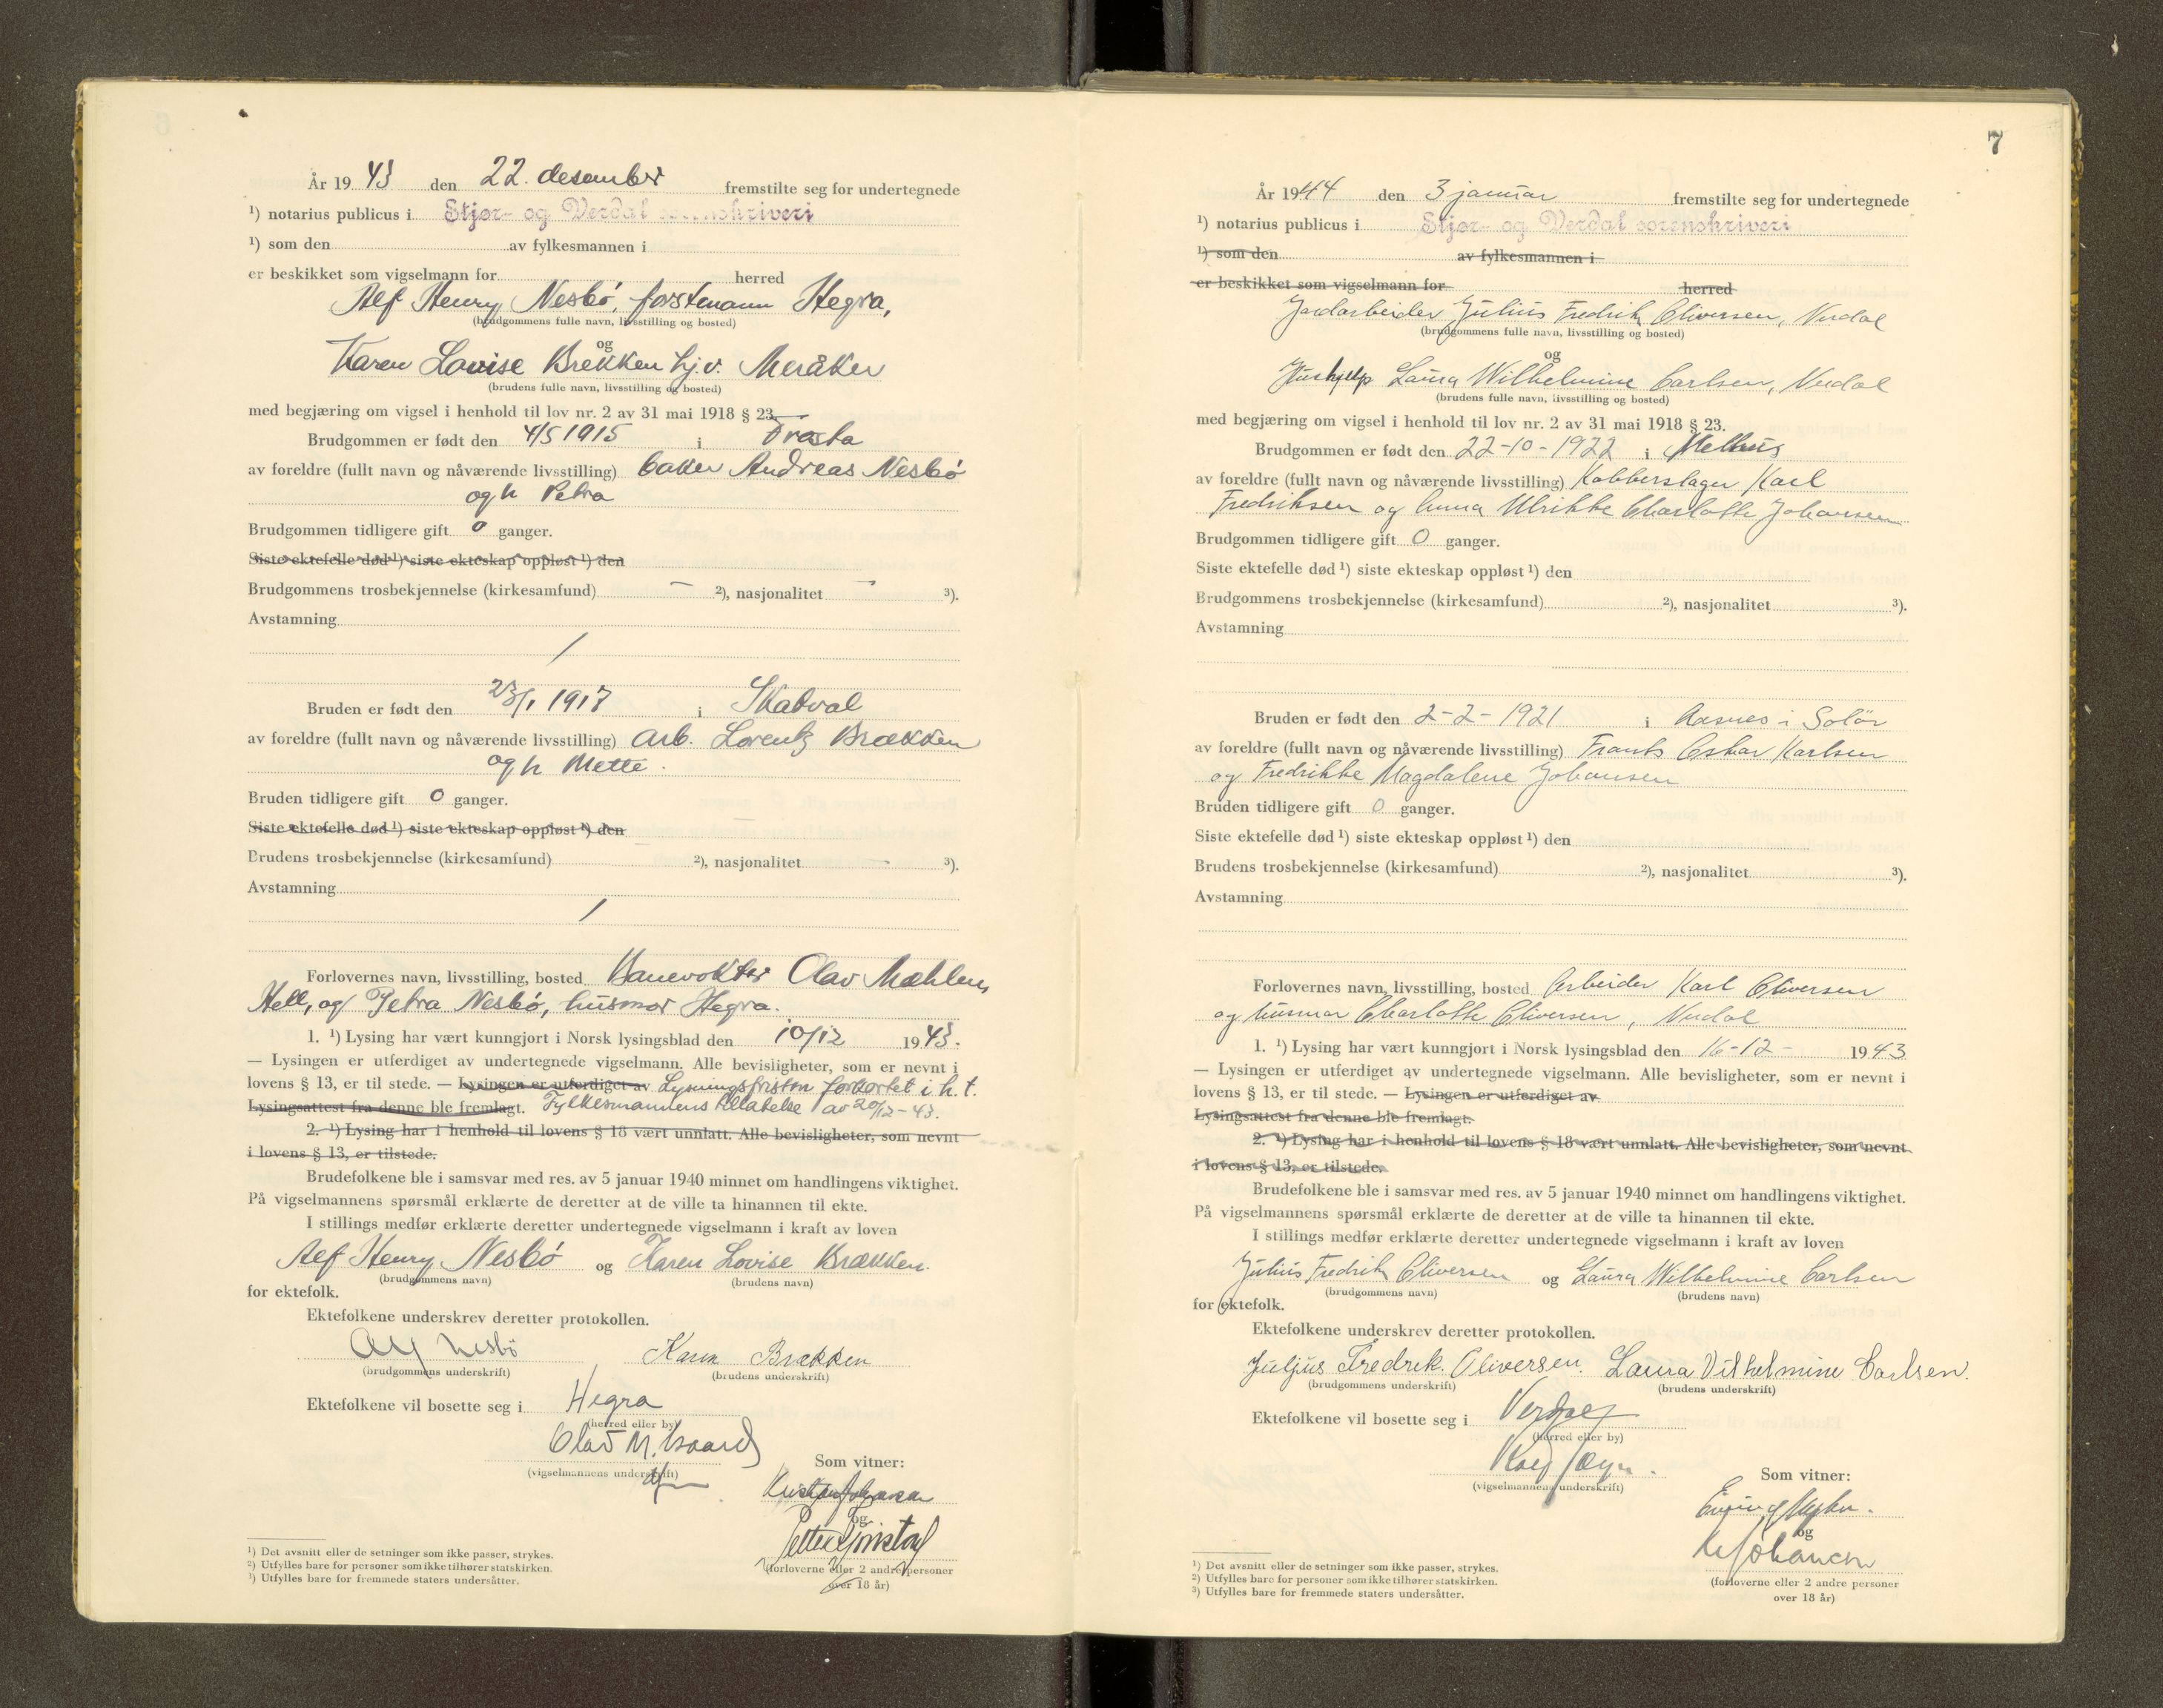 År 19 43 den 22. desember fremstilte seg for undertegnede
¹) notarius publicus i Stjør- og Verdal sorenskriveri
¹) som den av fylkesmannen i
er beskikket som vigselmann for herred
Alf Henry Nesbö, forstmann Hegra,
(brudgommens fulle navn, livsstilling og bosted)
og
Karen Lovise Brekken hj.v. Meråker
(brudens fulle navn, livsstilling og bosted)
med begjæring om vigsel i henhold til lov nr. 2 av 31 mai 1918 § 23.
Brudgommen er født den 4/5 1915 i Frosta
av foreldre (fullt navn og nåværende livsstilling) baker Andreas Nesbö
og h Petra
Brudgommen tidligere gift 0 ganger.
Siste ektefelle død ¹) siste ekteskap oppløst ¹) den
Brudgommens trosbekjennelse (kirkesamfund) — ²), nasjonalitet — ³).
Avstamning
/
Bruden er født den 23/1 1917 i Skatval
av foreldre (fullt navn og nåværende livsstilling) arb. Lorentz Brækken
og h Mette.
Bruden tidligere gift 0 ganger.
Siste ektefelle død ¹) siste ekteskap oppløst ¹) den
Brudens trosbekjennelse (kirkesamfund) ²), nasjonalitet — ³).
Avstamning
/
Forlovernes navn, livsstilling, bosted Banevokter Olav Mæhlen,
Hell, og Petra Nesbö, husmor Hegra.
1. ¹) Lysing har vært kunngjort i Norsk lysingsblad den 10/12 1943.
— Lysingen er utferdiget av undertegnede vigselmann. Alle bevisligheter, som er nevnt i
lovens § 13, er til stede. — Lysingen er utferdiget av Lysningsfristen forkortet i h. t.
Lysingsattest fra denne ble fremlagt. Fylkesmannens tillatelse av 20/12-43.
2. ¹) Lysing har i henhold til lovens § 18 vært unnlatt. Alle bevisligheter, som nevnt
i lovens § 13, er tilstede.
Brudefolkene ble i samsvar med res. av 5 januar 1940 minnet om handlingens viktighet.
På vigselmannens spørsmål erklærte de deretter at de ville ta hinannen til ekte.
I stillings medfør erklærte deretter undertegnede vigselmann i kraft av loven
Alf Henry Nesbö og Karen Lovise Brækken.
(brudgommens navn) (brudens navn)
for ektefolk.
Ektefolkene underskrev deretter protokollen.
Alf Nesbö Karen Brækken
(brudgommens underskrift) (brudens underskrift)
Ektefolkene vil bosette seg i Hegra
(herred eller by)
Olav M.
(vigselmannens underskrift)
Som vitner:
og
(forloverne eller 2 andre personer
over 18 år)
¹) Det avsnitt eller de setninger som ikke passer, strykes.
²) Utfylles bare for personer som ikke tilhører statskirken.
³) Utfylles bare for fremmede staters undersåtter.
7
År 1944 den 3 januar fremstilte seg for undertegnede
¹) notarius publicus i Stjør- og Verdal sorenskriveri
¹) som den av fylkesmannen i
er beskikket som vigselmann for herred
Jordarbeider Julius Fredrik Oliversen, Verdal
(brudgommens fulle navn, livsstilling og bosted)
og
Hushjelp Laura Wilhelmine Carlsen, Verdal
(brudens fulle navn, livsstilling og bosted)
med begjæring om vigsel i henhold til lov nr. 2 av 31 mai 1918 § 23.
Brudgommen er født den 22-10-1922 i Melhus
av foreldre (fullt navn og nåværende livsstilling) Kobberslager Karl
Fredriksen og Anna Ulrikke Charlotte Johansen
Brudgommen tidligere gift 0 ganger.
Siste ektefelle død ¹) siste ekteskap oppløst ¹) den
Brudgommens trosbekjennelse (kirkesamfund) ²), nasjonalitet ³).
Avstamning
Bruden er født den 2-2-1921 i Aasnes i Solör
av foreldre (fullt navn og nåværende livsstilling) Frants Oskar Karlsen
og Fredrikke Magdalene Johansen
Bruden tidligere gift 0 ganger.
Siste ektefelle død ¹) siste ekteskap oppløst ¹) den
Brudens trosbekjennelse (kirkesamfund) ²), nasjonalitet ³).
Avstamning
Forlovernes navn, livsstilling, bosted Arbeider Karl Oliversen
og husmor Charlotte Oliversen, Verdal
1. ¹) Lysing har vært kunngjort i Norsk lysingsblad den 16-12- 1943
— Lysingen er utferdiget av undertegnede vigselmann. Alle bevisligheter, som er nevnt i
lovens § 13, er til stede. — Lysingen er utferdiget av
Lysingsattest fra denne ble fremlagt.
2. ¹) Lysing har i henhold til lovens § 18 vært unnlatt. Alle bevisligheter, som nevnt
i lovens § 13, er tilstede.
Brudefolkene ble i samsvar med res. av 5 januar 1940 minnet om handlingens viktighet.
På vigselmannens spørsmål erklærte de deretter at de ville ta hinannen til ekte.
I stillings medfør erklærte deretter undertegnede vigselmann i kraft av loven
Julius Fredrik Oliversen og Laura Wilhelmine Carlsen
(brudgommens navn) (brudens navn)
for ektefolk.
Ektefolkene underskrev deretter protokollen.
Juljus Fredrek. Oliversen. Laura Vilhelmine Carlsen.
(brudgommens underskrift) (brudens underskrift)
Ektefolkene vil bosette seg i Verdal
(herred eller by)
(vigselmannens underskrift)
Som vitner:
og
Johansen
(forloverne eller 2 andre personer
over 18 år)
¹) Det avsnitt eller de setninger som ikke passer, strykes.
²) Utfylles bare for personer som ikke tilhører statskirken.
³) Utfylles bare for fremmede staters undersåtter.